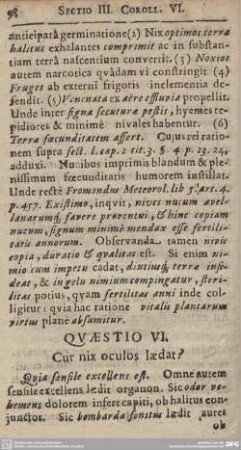 98 SECTIO III. COROLL. VI.
anticipatâ germinatione (2) Nix optimos terræ
halitus exhalantes comprimit ac in substan-
tiam terrâ nascentium convertit. (3) Noxios
autem narcotica quâdam vi constringit (4)
Fruges ab externi frigoris inclementia de-
fendit. (5) Venenata ex aëre effluvia propellit.
Unde inter signa secuturæ pestis, hyemes te-
pidiores & minimè nivales habentur. (6)
Terræ fœcunditatem affert. Cujus rei ratio-
nem supra sect. 1. cap. 2. tit. 3. §. 4. p. 23. 24.
adduxi. Nucibus imprimis blandum & ple-
nissimum fœcunditaris humorem instillat.
Unde rectè Fromondus Meteorol. lib 5. art. 4.
p. 457. Existimo, inquit, nives nucum avel-
lanarumq; favere proventui, & hinc copiam
nucum, signum minimè mendax esse fertili-
tatis annorum. Observanda tamen nivis
copia, duratio & qualitas est. Si enim ni-
mio cum impetu cadat, diutiusq; terræ insi-
deat, & ingelu nimium compingatur, steri-
litas potius, quam fertilitas anni inde col-
ligitur: quia hac ratione vitalis plantarum
virtus planè absumitur.
QVÆSTIO VI.
Cur nix oculos lædat?
Quia sensile excellens est. Omne autem
sensile excellens lædit organon. Sic odor ve-
hemens dolorem infert capiti, ob halitus con-
junctos. Sic bombarda sonitus lædit aures
ob